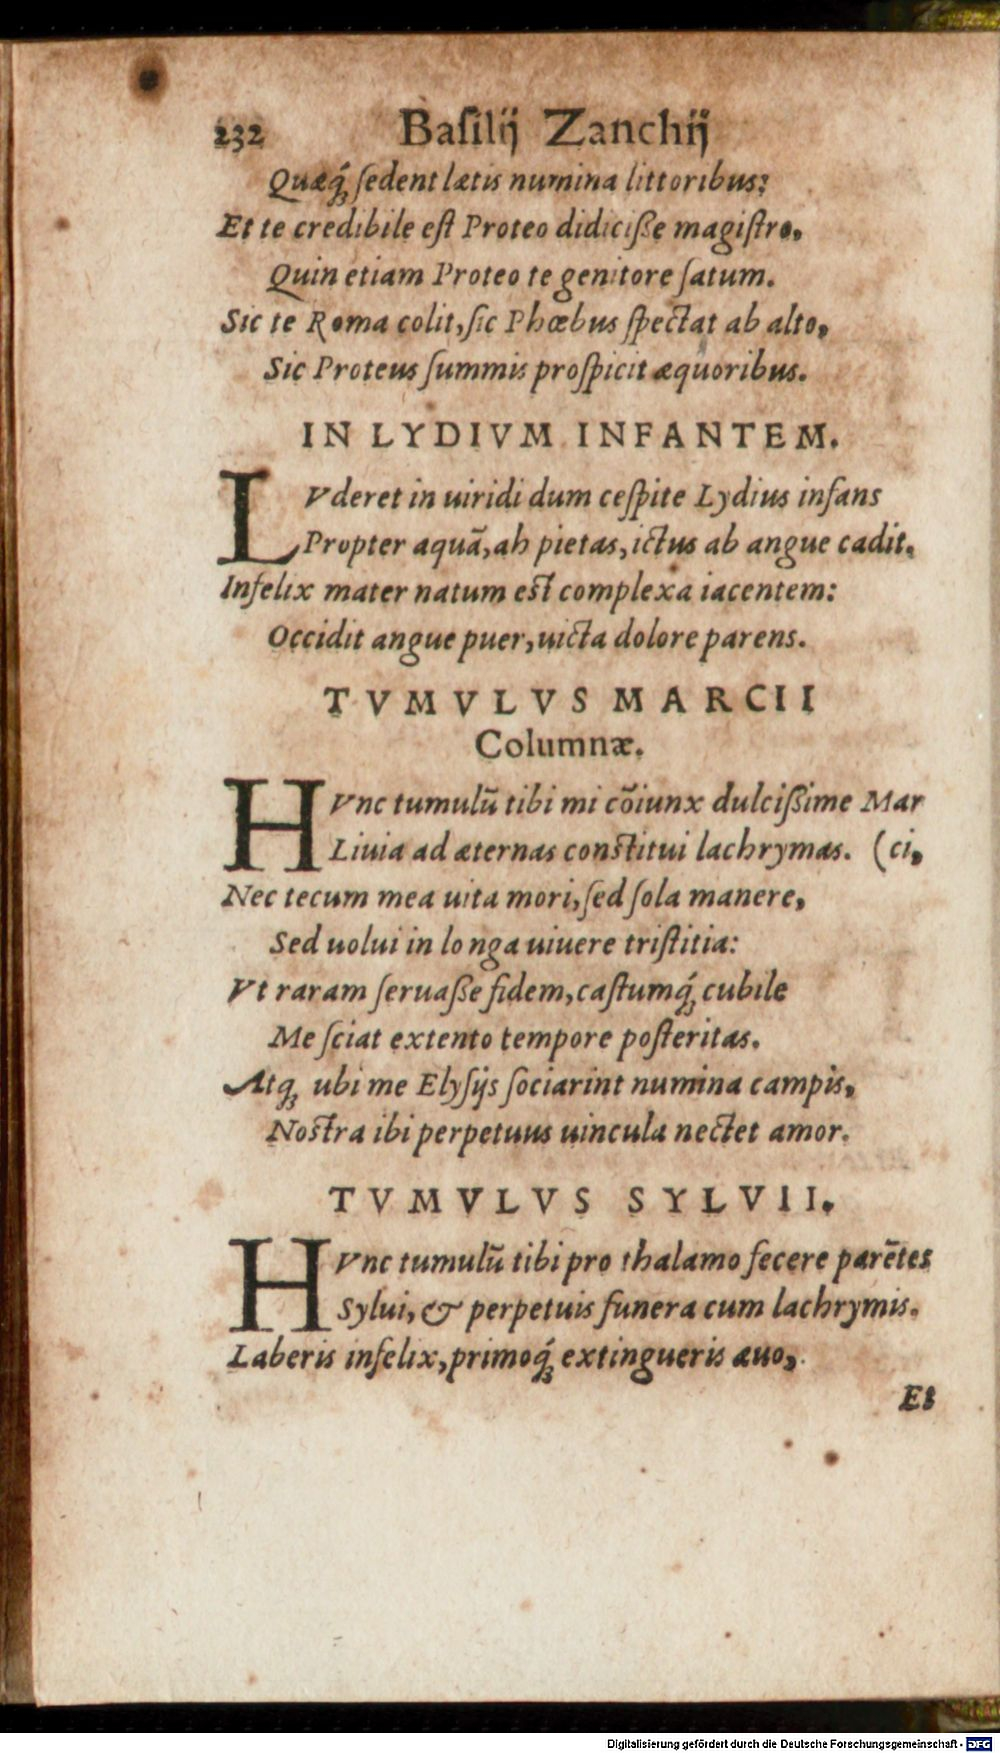 232 Baſilij Zanchij
Quæq́; ſedent lætis numina littoribus:
Et te credibile eſt Proteo didiciſſe magiſtro,
Quin etiam Proteo te genitore ſatum.
Sic te Roma colit, ſic Phœbus ſpectat ab alto,
Sic Proteus ſummis proſpicit æquoribus.
IN LYDIVM INFANTEM.
LVderet in uiridi dum ceſpite Lydius infans
Propter aquã, ah pietas, ictus ab angue cadit.
Infelix mater natum eſt complexa iacentem:
Occidit angue puer, uicta dolore parens.
TVMVLVS MARCII
Columnæ.
HVnc tumulũ tibi mi cõiunx dulciſſime Mar
Liuia ad æternas conſtitui lachrymas. (ci,
Nec tecum mea uita mori, ſed ſola manere,
Sed uolui in lo nga uiuere triſtitia:
Vt raram ſeruaſſe fidem, caſtumq́; cubile
Me ſciat extento tempore poſteritas.
Atq; ubi me Elyſijs ſociarint numina campis,
Noſtra ibi perpetuus uincula nectet amor.
TVMVLVS SYLVII.
HVnc tumulũ tibi pro thalamo fecere parẽtes
Sylui, & perpetuis funera cum lachrymis.
Laberis infelix, primoq́; extingueris æuo,
Et
Digitalisierung gefördert durch die Deutsche Forschungsgemeinschaft - DFG